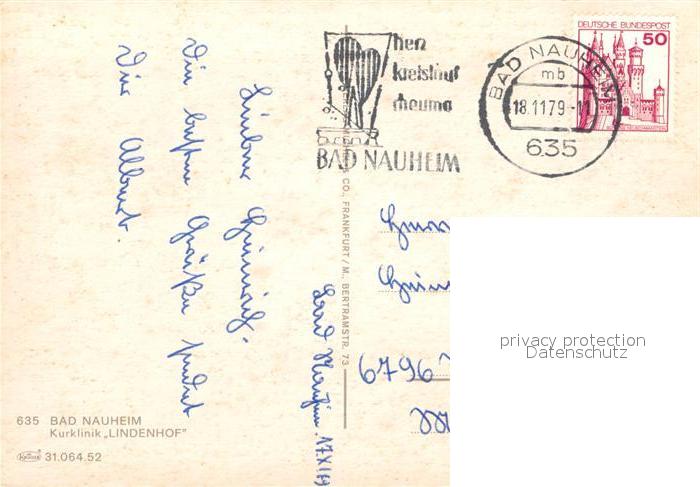 Lieber Heinrich.
Die besten Grüße sendet
Dein Albert
Bad Nauheim 17.XI.79
herz
kreislauf
rheuma
BAD NAUHEIM
BAD NAUHEIM
mb
18.11.79-11
635
DEUTSCHE BUNDESPOST
50
CO., FRANKFURT/M., BERTRAMSTR. 73
Herrn
6796
privacy protection
Datenschutz
635 BAD NAUHEIM
Kurklinik „LINDENHOF"
Krüger 31.064.52